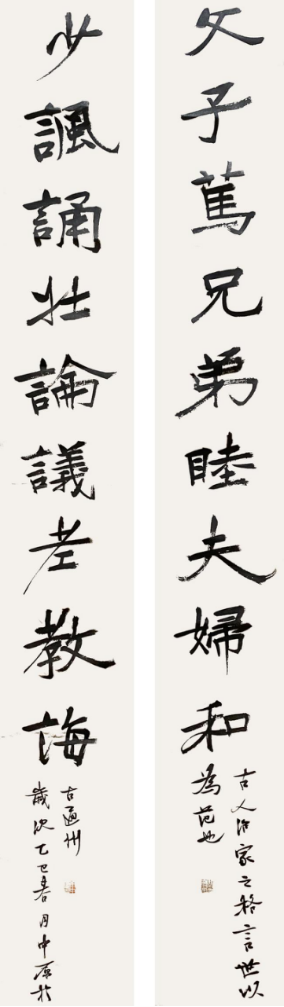 父子篤兄弟睦夫婦和
古人治家之格言世以
為范也
少諷誦壯論議老教誨
歲次乙巳春月中原於
古通州